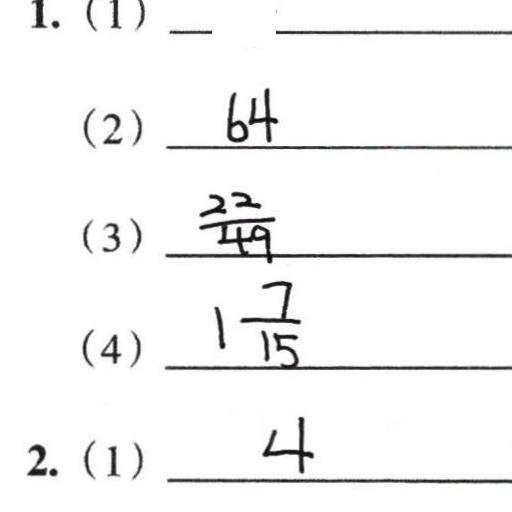 1. (1)
(2) 64
(3) 22/49
(4) 1 7/15
2. (1) 4